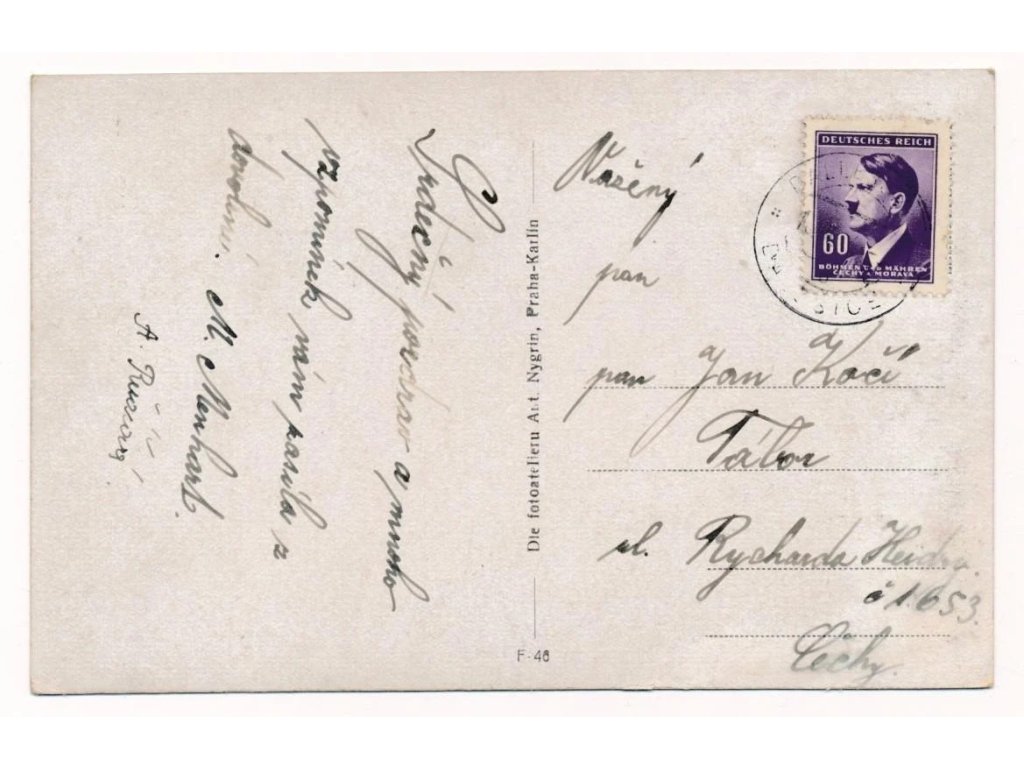 Srdečný pozdrav a mnoho
vzpomínek vám zasílá z
dovolené.
M. Menhart.
A.
Dle fotoatelieru Ant. Nygrin, Praha-Karlin
F-46
Vážený
pan
pan Jan Kočí
Tábor
ul. Rycharda
č 1.653.
Čechy.
DEUTSCHES REICH
60
BÖHMEN U. MÄHREN
ČECHY A MORAVA